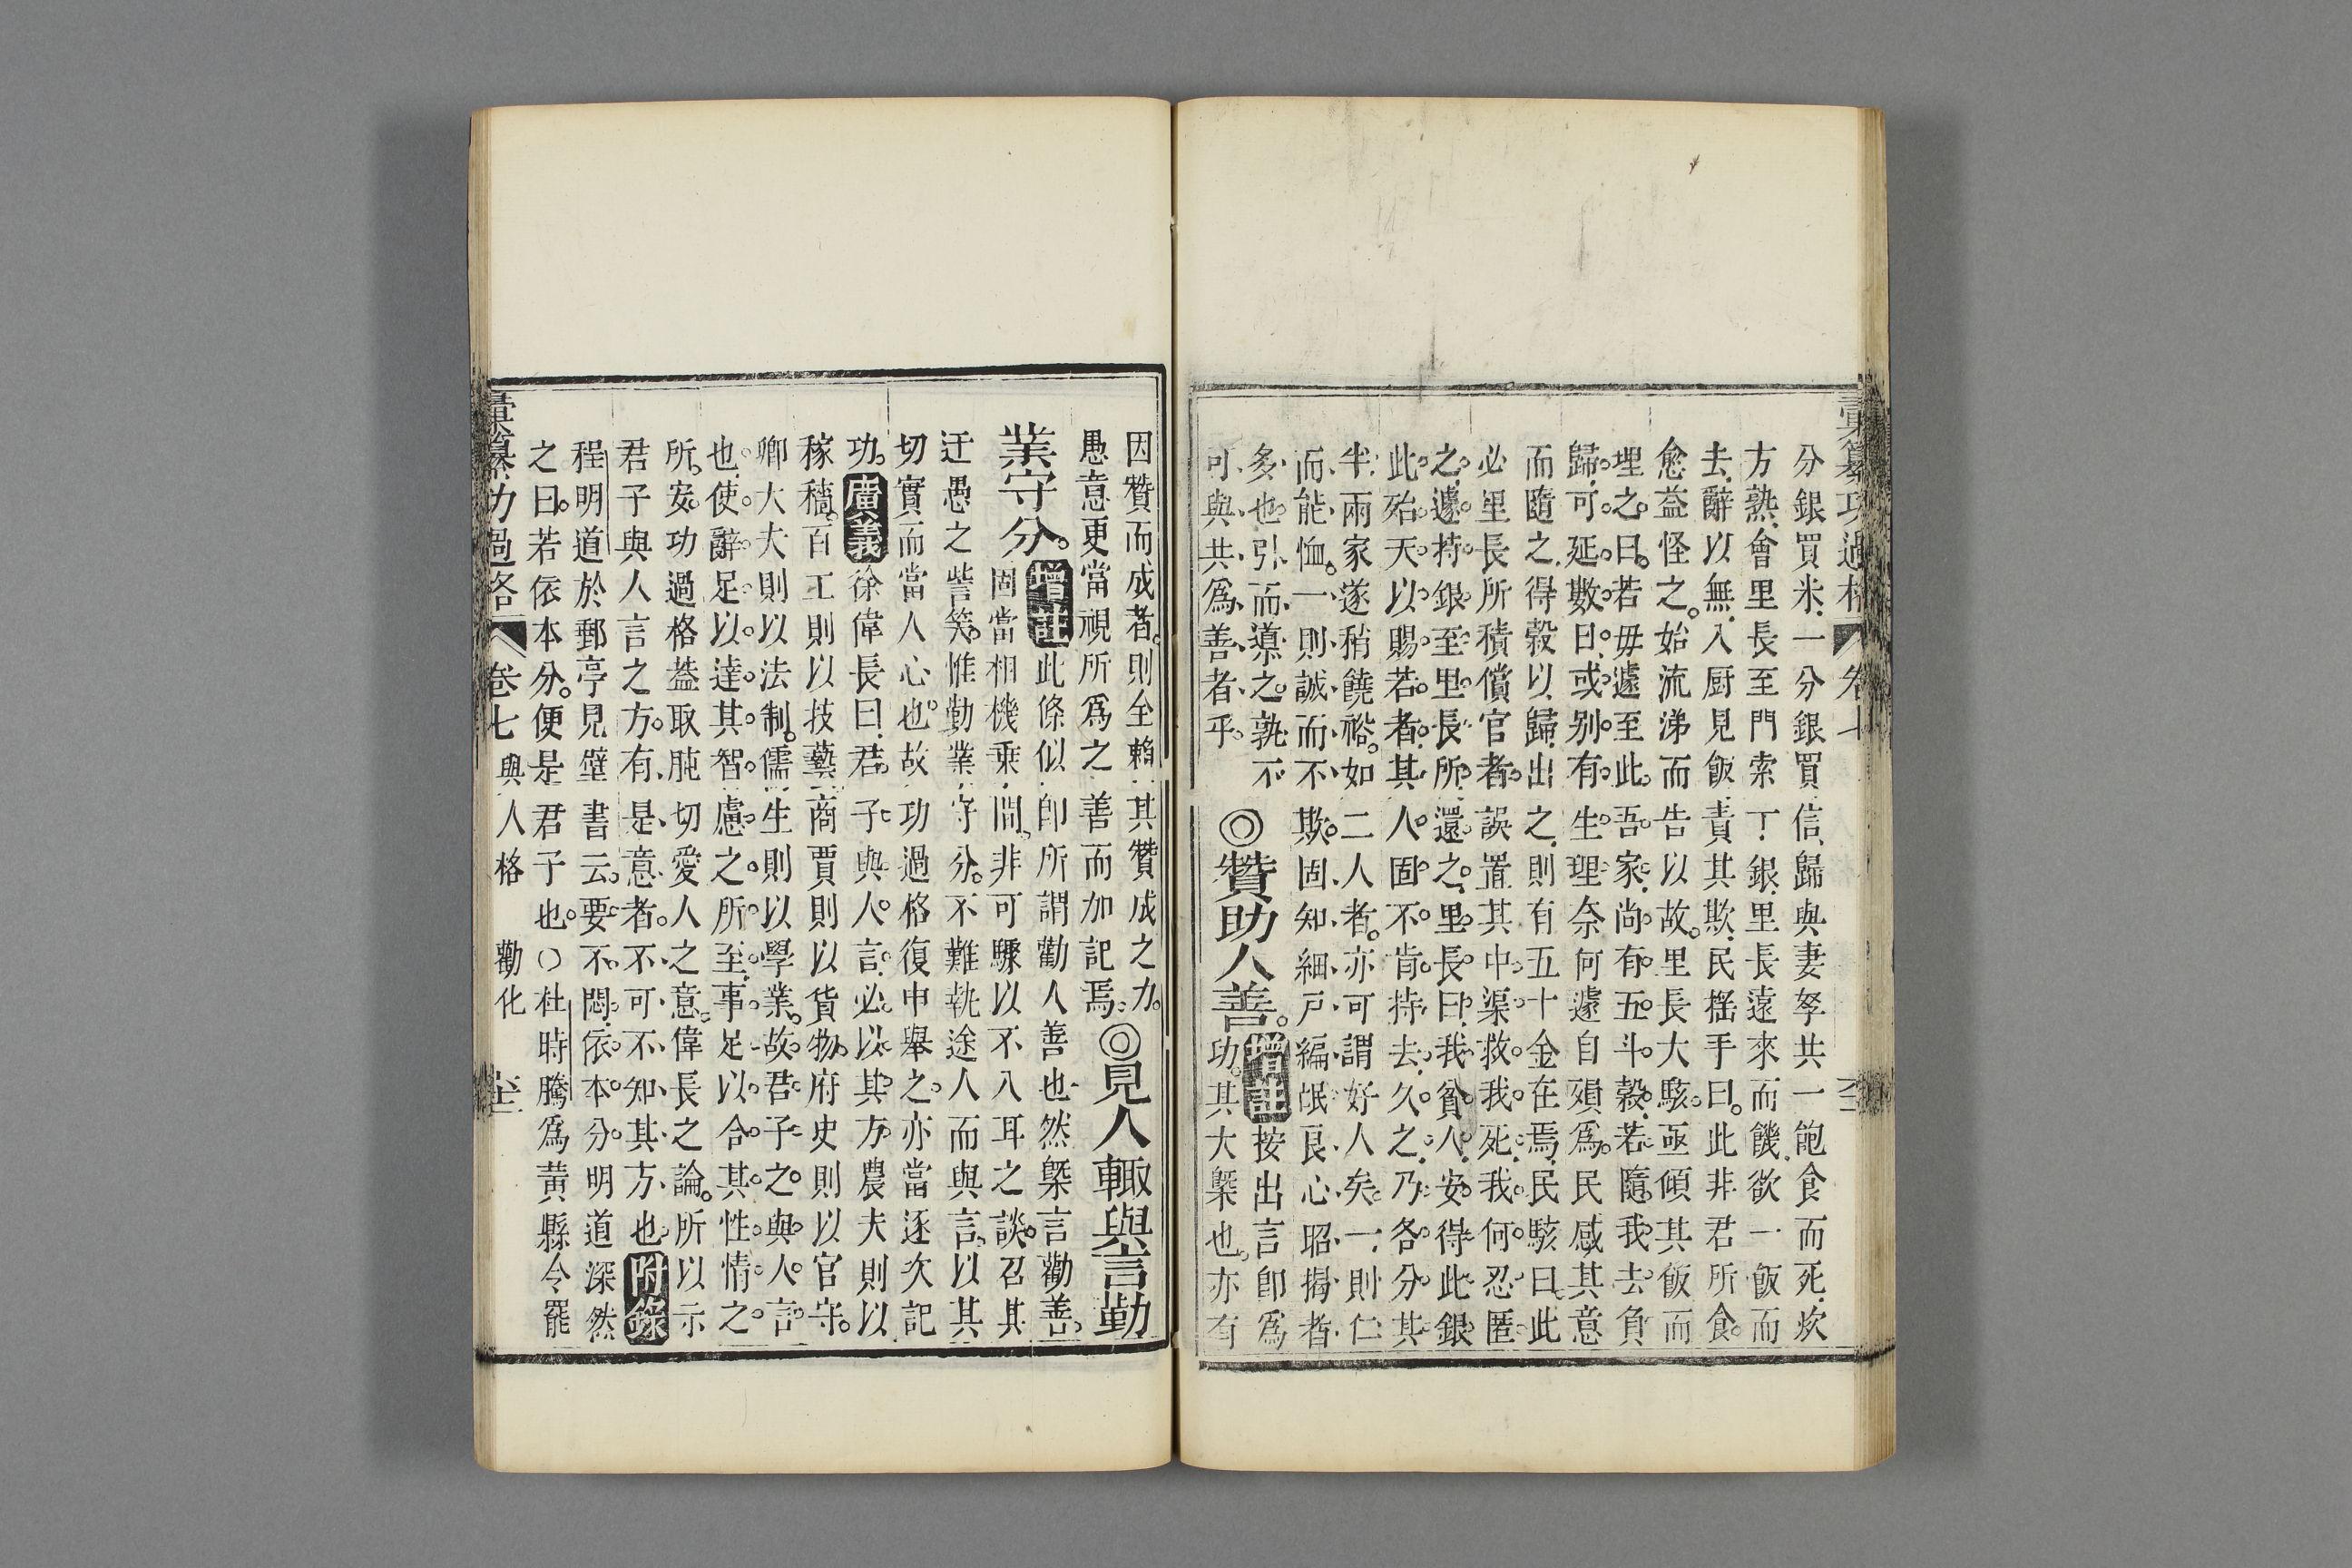 彙纂功過格 卷七 六二
分銀買米一分銀買信歸與妻孥共一飽食而死炊
方熟會里長至門索丁銀里長遠來而饑欲一飯而
去辭以無入厨見飯責其欺民搖手曰此非君所食
愈益怪之始流涕而告以故里長大駭亟傾其飯而
埋之曰若毋遽至此吾家尚有五斗穀若隨我去負
歸可延數日或别有生理奈何遽自殞爲民感其意
而隨之得穀以歸出之則有五十金在焉民駭曰此
必里長所積償官者誤置其中渠救我死我何忍匿
之遽持銀至里長所還之里長曰我貧人安得此銀
此殆天以賜若者其人固不肯持去久之乃各分其
半兩家遂稍饒裕如二人者亦可謂好人矣一則仁
而能恤一則誠而不欺固知細戶編氓艮心昭揭者
多也引而導之孰不
可與共爲善者乎
◎贊助人善。
增註按出言卽爲
功其大槩也亦有
因贊而成者則全賴其贊成之力
愚意更當視所爲之善而加記焉
◎見人輒與言勤
業守分。
增註此條似卽所謂勸人善也然槩言勸善
固當相機乗間非可驟以不入耳之談召其
迂愚之訾笑惟勤業守分不難執途人而與言以其
切實而當人心也故功過格復申舉之亦當逐次記
功廣義徐偉長曰君子與人言必以其方農夫則以
稼穡百工則以技藝商賈則以貨物府史則以官守
卿大夫則以法制儒生則以學業故君子之與人言
也使辭足以達其智慮之所至事足以合其性情之
所安功過格葢取肫切愛人之意偉長之論所以示
君子與人言之方有是意者不可不知其方也附錄
程明道於郵亭見壁書云要不悶依本分明道深然
之曰若依本分便是君子也○杜時騰爲黃縣令罷
彙纂功過格 卷七 與人格 勸化 六三